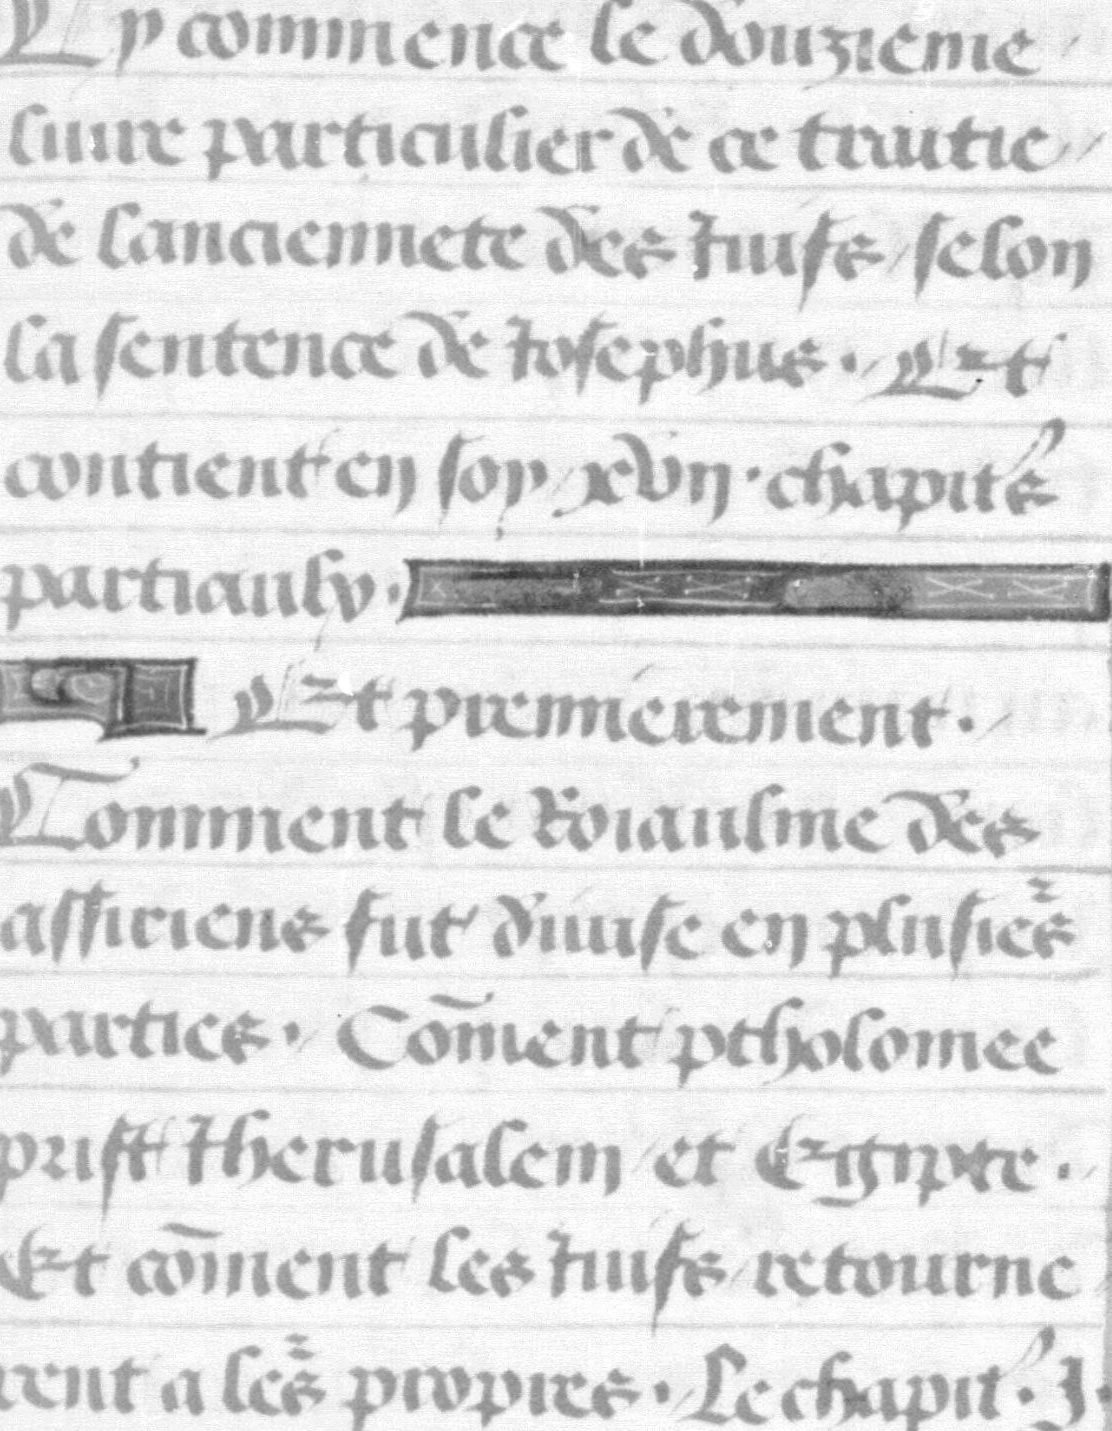 Cy commence le douzieme
liure particulier de ce traittie
de lanciennete des Juifs / selon
la sentence de Josephus . Et
contient en soy xvij . chapit's
particuliers .
Et premierement .
Comment le Roiaulme des
assiriens fut diuise en plusie~s
parties . Com̄ent ptholomee
prist Iherusalem et Egipte .
Et com̄ent les Juifs retourne
rent a le~s propres . Le chapit' . I .